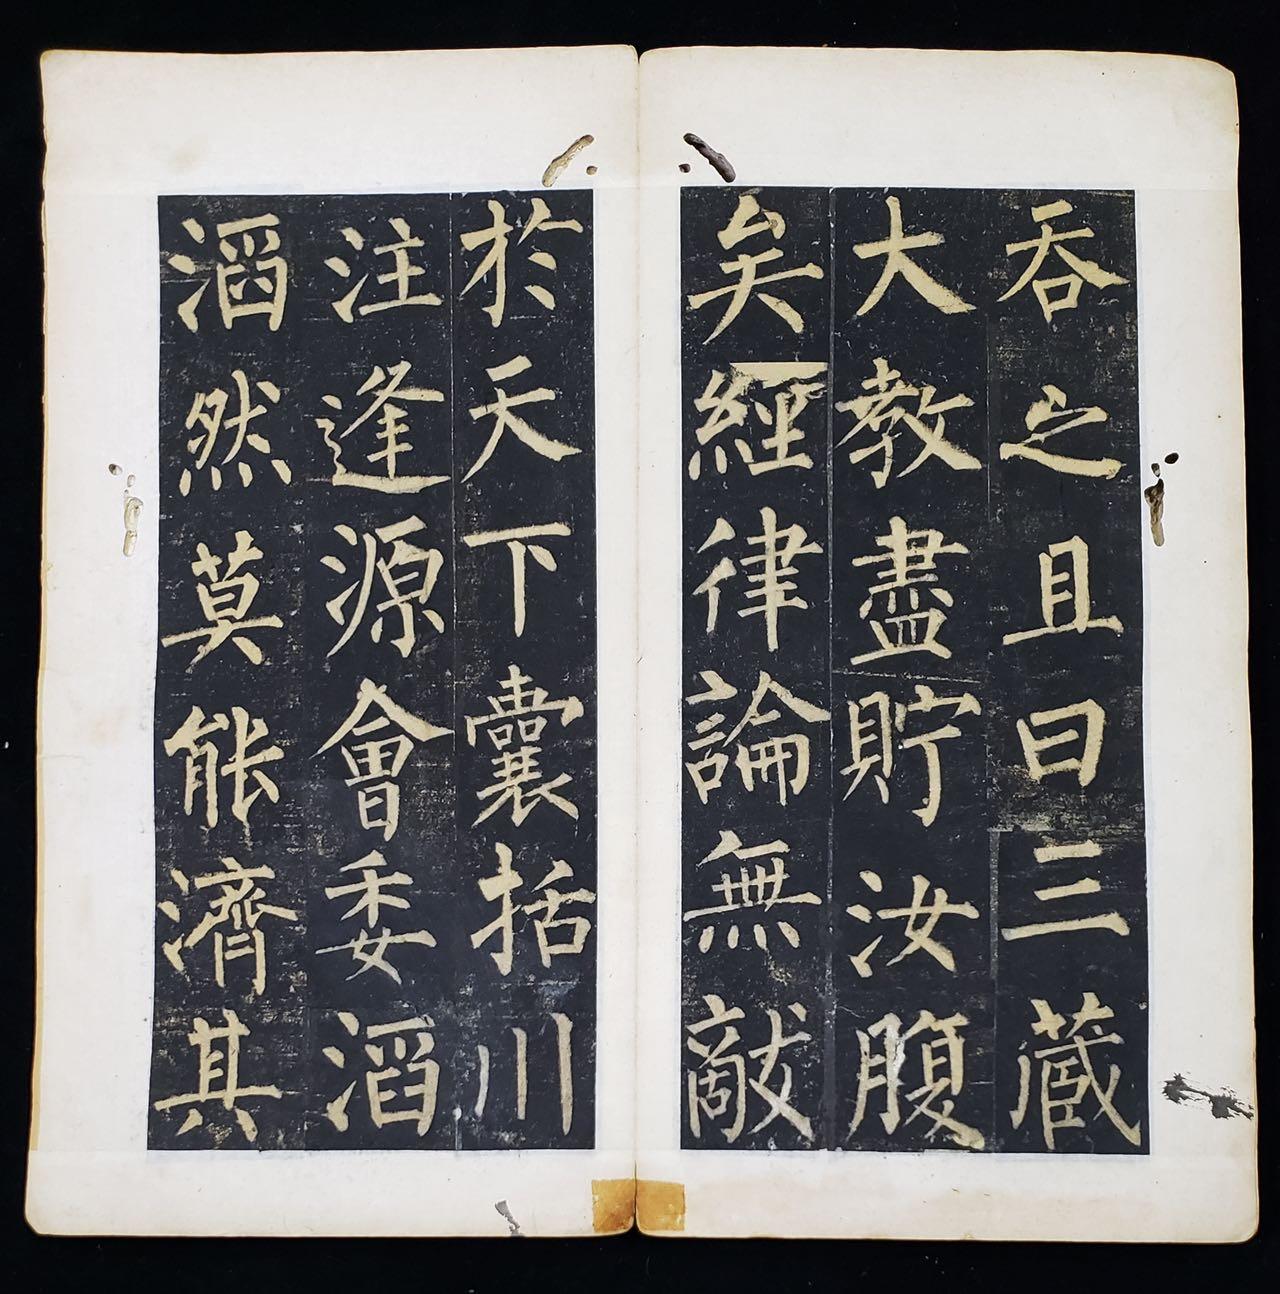 吞之且曰三藏
大教盡貯汝腹
矣經律論無敵
於天下囊括川
注逢源會委滔
滔然莫能濟其